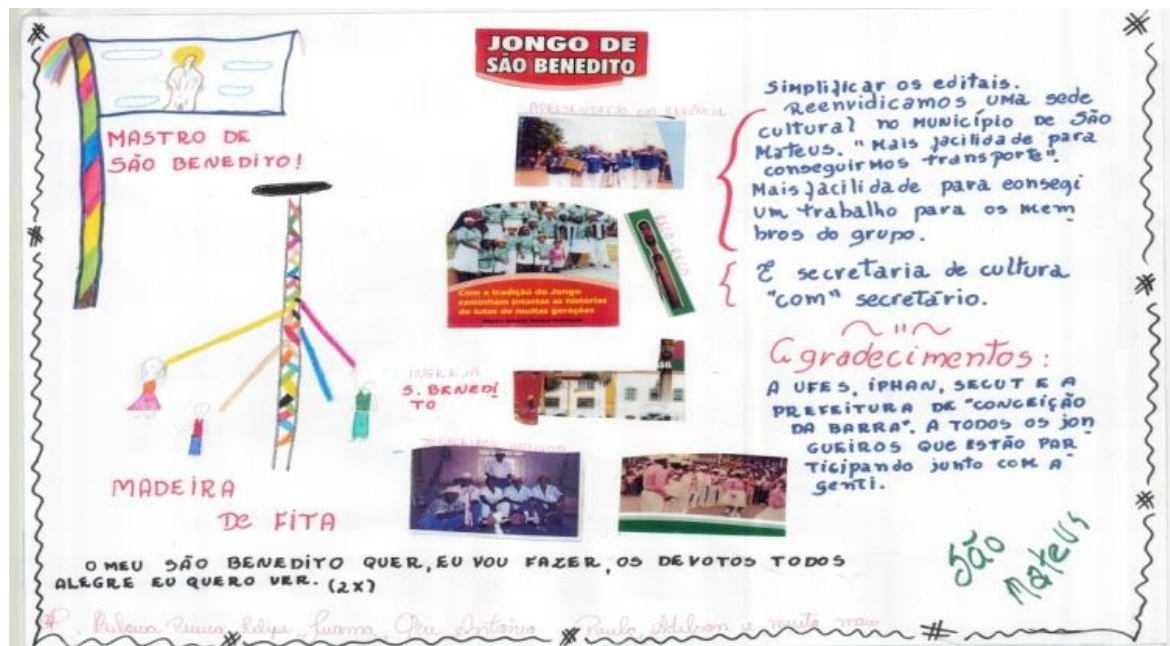 JONGO DE
SÃO BENEDITO
MASTRO DE
SÃO BENEDITO!
MADEIRA
DE FITA
APRESENTAÇÃO em
RECO-RECO
Com a tradição do Jongo
caminham intactas as histórias
de lutas de muitas gerações
INGREJA
S. BENEDI
TO
JONGUEIROS ANTIGOS
Simplificar os editais.
Reenvidicamos uma sede
cultural no Município de São
Mateus. "Mais facilidade para
conseguirmos transporte".
Mais facilidade para consegi
um trabalho para os mem
bros do grupo.
E secretaria de cultura
"com" secretário.
Agradecimentos:
A UFES, IPHAN, SECUT E A
PREFEITURA DE "CONCEIÇÃO
DA BARRA". A TODOS OS jon
GUEIROS QUE ESTÃO PAR
TICIPANDO junto com A
genti.
São
Mateus
O MEU SÃO BENEDITO QUER, EU VOU FAZER, OS DEVOTOS TODOS
ALEGRE EU QUERO VER. (2X)
Antônio Paulo, Adilson e muito mais